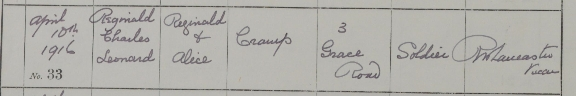 April 10th 1916 No. 33
Reginald Charles Leonard
Reginald & Alice
Cramp
3 Grace Road
Soldier
Lancaster Vicar